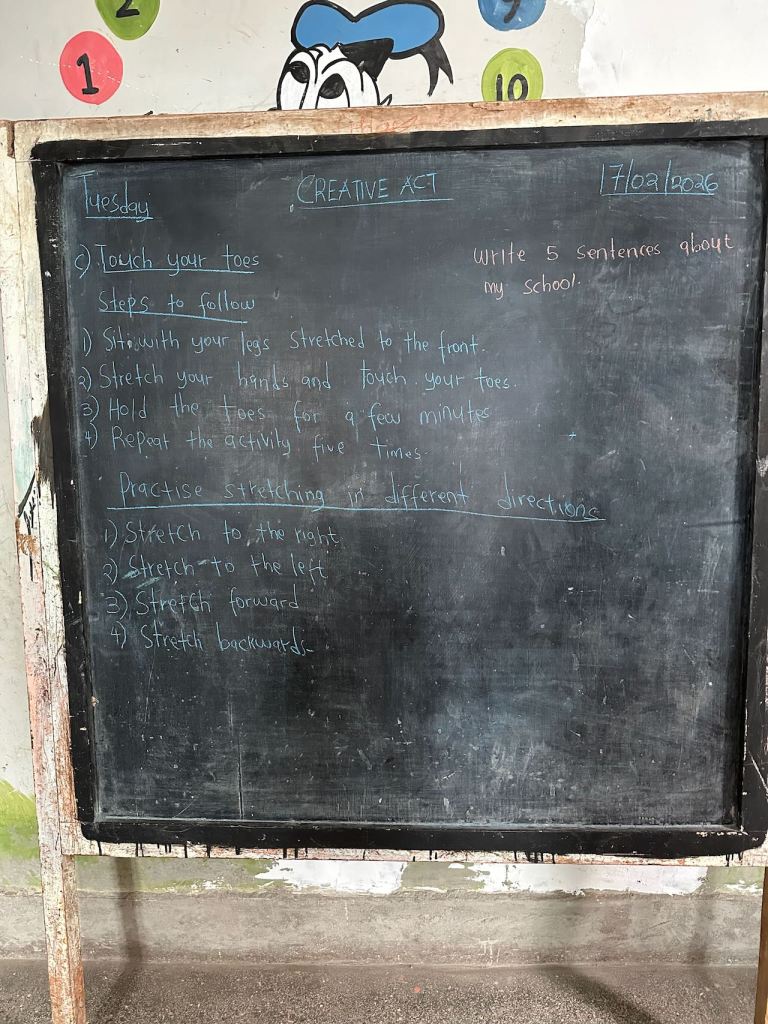 2
9
1
10
Tuesday
CREATIVE ACT
17/02/2026
c) Touch your toes
Write 5 sentences about
my school.
Steps to follow
1) Sit with your legs stretched to the front.
2) Stretch your hands and touch your toes.
3) Hold the toes for a few minutes
4) Repeat the activity five times.
Practise stretching in different directions
1) Stretch to the right
2) Stretch to the left
3) Stretch forward
4) Stretch backwards-